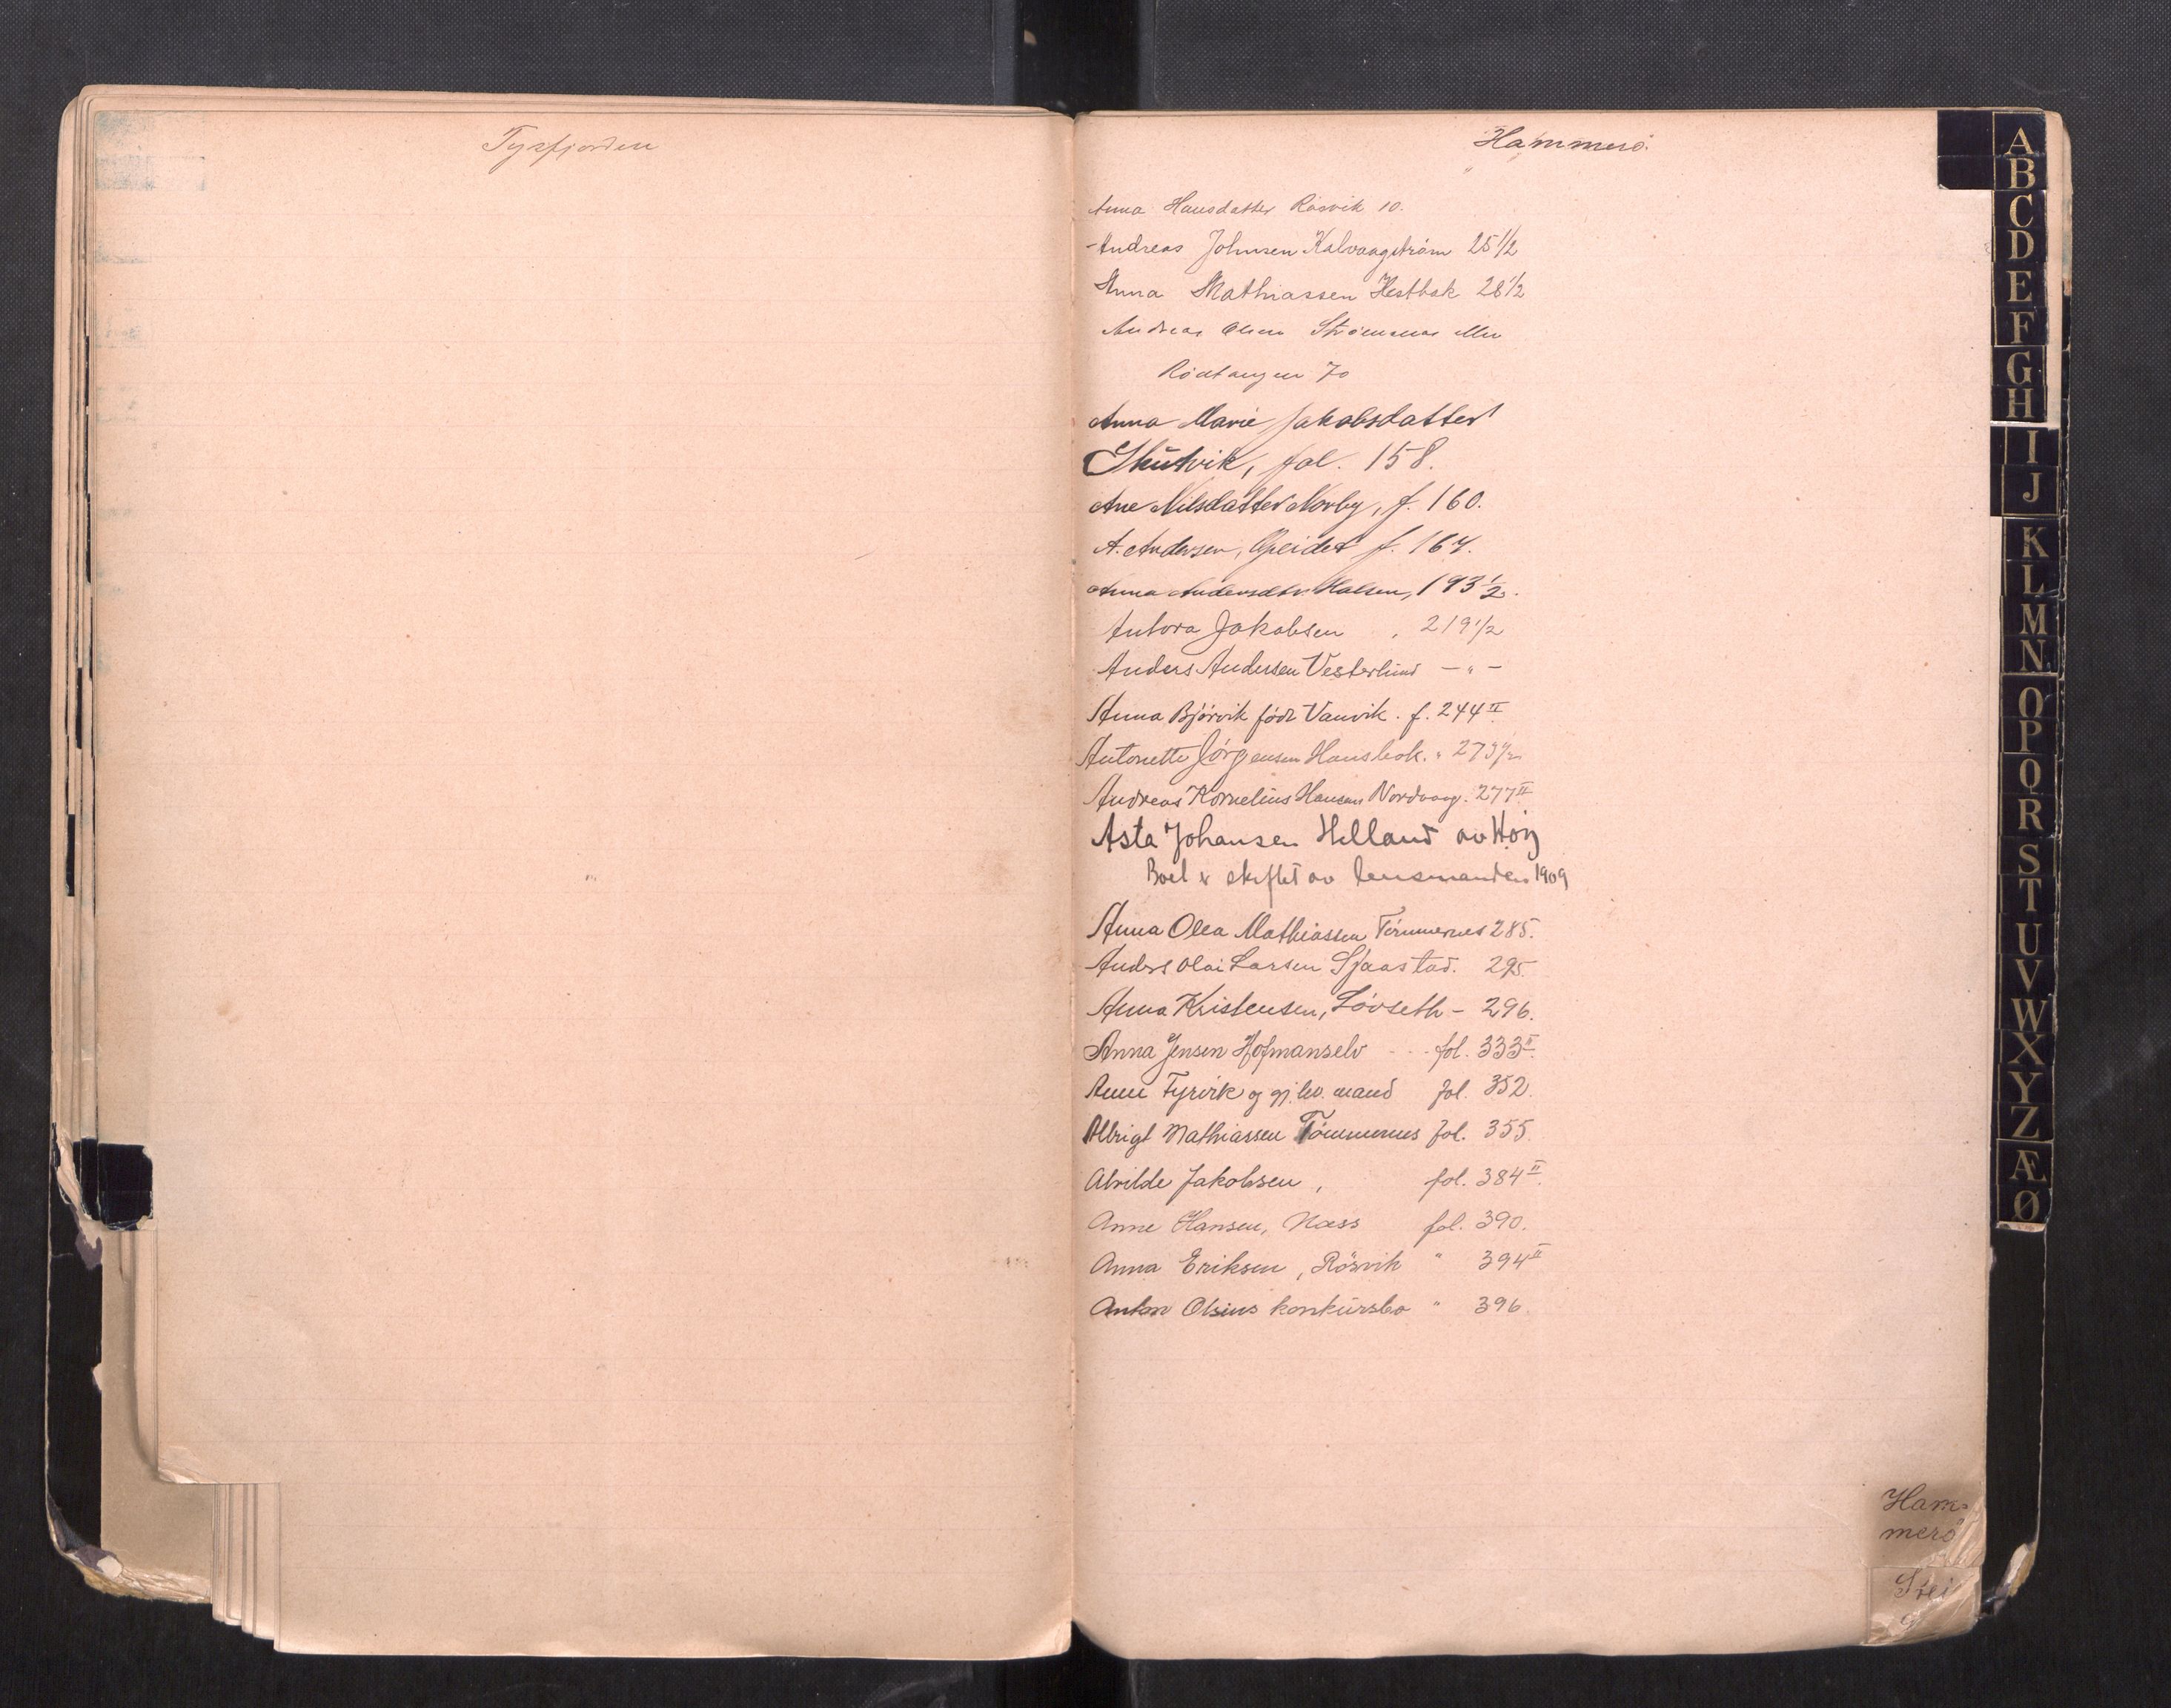 Tysfjorden
Hammerö.
Anna Hansdatter Rösvik 10.
Andreas Johnsen Kalvaagström 25 1/2
Anna Mathiassen Hestbak 28 1/2
Andreas Olsen Strömmnes eller
Rödtangen 70
Anna Marie Jakobsdatter
Skutvik, fol. 158.
Ane Nilsdatter Norby, f. 160.
A. Andersen, Opeidet f. 167.
Anna Andersdtr. Halsen, 193 1/2.
Antora Jakobsen , 219 1/2
Anders Andersen Vesterlund — " —
Anna Björvik född Vanvik. f. 244 II.
Antonette Jörgensen Hansbak. " 273 1/2
Andreas Kornelius Hansen Nordvaag. 277 II
Asta Johansen Helland av
Boet er skiftet av lensmanden 1909
Anna Olea Mathiassen Tömmernes 285.
Anders Olai Larsen Sjaastad. 295.
Anna Kristensen, Lövseth – 296.
Anna Jensen Hofmanselv - - - fol. 333 II.
Anne Tyrvik og gj.lev. mand fol. 352.
Albrigt Mathiassen Tömmernes fol. 355.
Alvilde Jakobsen , fol. 384 II.
Anne Hansen, Næss fol. 390.
Anna Eriksen, Rösvik " 394 II
Anton Olsens konkursbo " 396.
A
B
C
D
E
F
G
H
I
J
K
L
M
N
O
P
Q
R
S
T
U
V
W
X
Y
Z
Æ
Ø
Ham-
merö